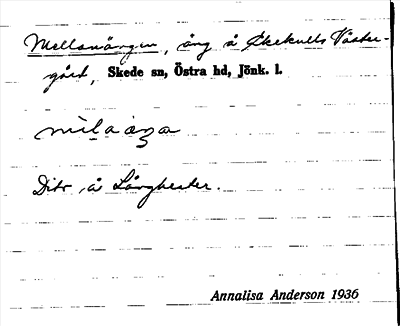 Mellanängen, äng å Ekekulls Väster-
gård, Skede sn, Östra hd, Jönk. l.
Dito å
Annalisa Anderson 1936